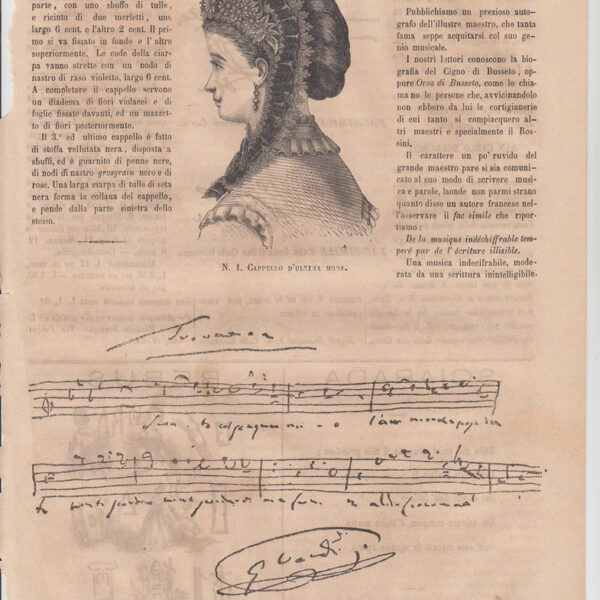 parte, con uno sbuffo di tulle,
e ricinto di due merletti, uno
largo 6 cent. e l'altro 2 cent. Il pri
mo si va fissato in fondo e l'altro
superiormente. Le code della ciar-
pa vanno strette con un nodo di
nastro di raso violetto, largo 6 cent.
A completare il cappello servono
un diadema di fiori violacei e di
foglie fissate davanti, ed un mazzet-
to di fiori posteriormente.
Il 3.º ed ultimo cappello è fatto
di stoffa vellutata nera, disposta a
sbuffi, ed è guarnito di penne nere,
di nodi di nastro grosgrain nero e di
rose. Una larga ciarpa di tulle di seta
nera forma il collana del cappello,
e pende dalla parte sinistra dello
stesso.
N. 1. Cappello d'ultima moda.
Pubblichiamo un prezioso auto-
grafo dell'illustre maestro, che tanta
fama seppe acquistarsi col suo ge-
nio musicale.
I nostri lettori conoscono la bio-
grafia del Cigno di Busseto, op-
pure Orso di Busseto, come lo chia-
ma no le persone che, avvicinandolo
non ebbero da lui le cortigianerie
di cui tanto si compiacquero al-
tri maestri e specialmente il Ros-
sini.
Il carattere un po' ruvido del
grande maestro pare si sia comuni-
cato al suo modo di scrivere musi-
ca e parole, laonde non parmi strano
quanto disse un autore francese nel-
l'osservare il fac-simile che ripor-
tiamo:
De la musique indéchiffrable tem-
peré par de l'écriture illisible.
Una musica indecifrabile, mode-
rata da una scrittura inintelligibile.
G Verdi